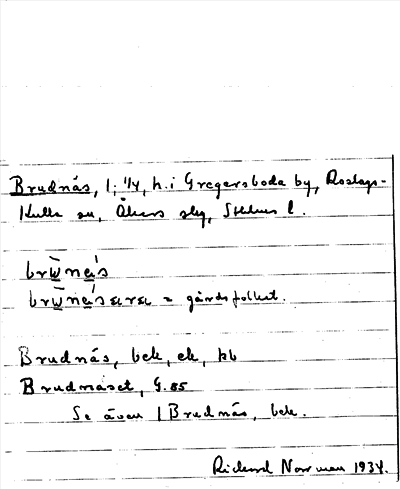 Brudnäs, 1; 1/4, h. i Gregersboda by, Roslags-
Kulla sn, Åkers skg, Sthlms l.
brẁnás
= gårdsfolket.
Brudnäs, bek, ek, kb
Brudnäset, G. 85
Se även / Brudnäs, bek.
Rickard Norrman 1934.